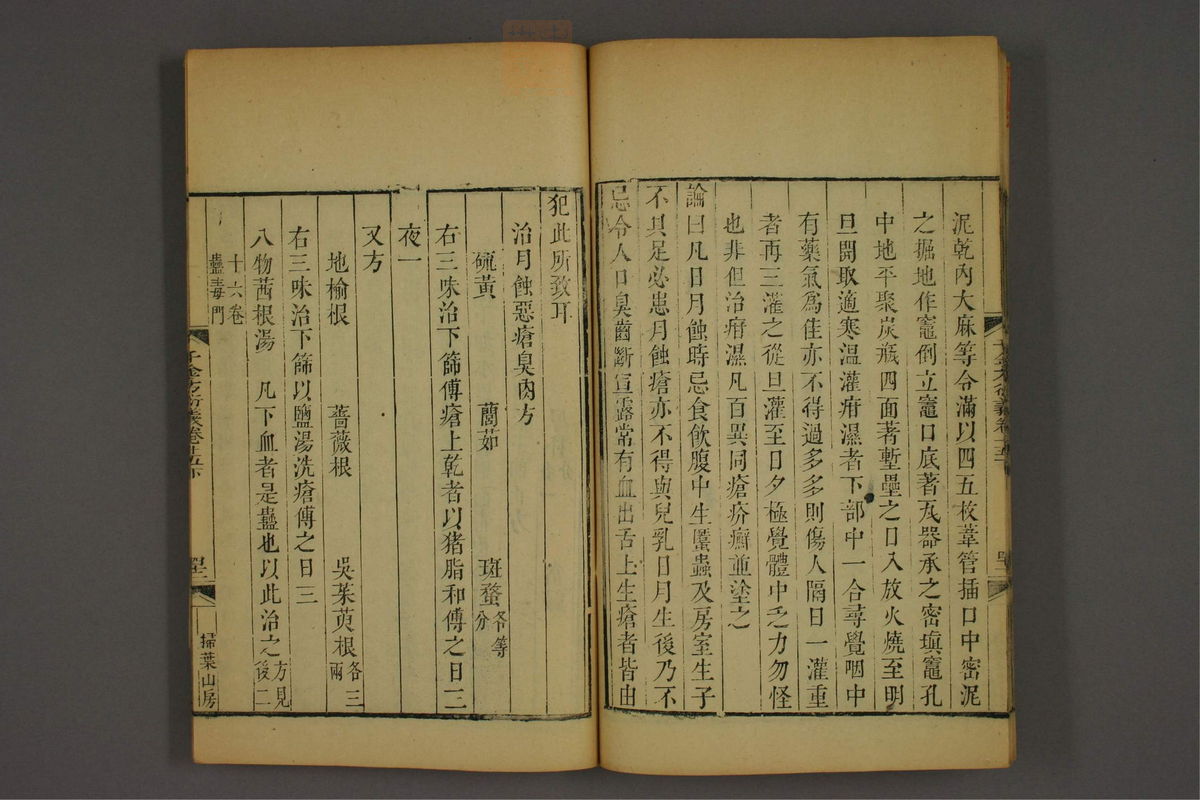 泥乾內大麻等令滿以四五枚葦管插口中密泥
之掘地作竈倒立竈口底著瓦器承之密塡竈孔
中地平聚炭瓶四面著墼壘之日入放火燒至明
旦開取適寒溫灌疳濕者下部中一合尋覺咽中
有藥氣爲佳亦不得過多多則傷人隔日一灌重
者再三灌之從旦灌至日夕極覺體中乏力勿怪
也非但治疳濕凡百異同瘡疥癬並塗之
論曰凡日月蝕時忌食飮腹中生䘌蟲及房室生子
不具足必患月蝕瘡亦不得與兒乳日月生後乃不
忌令人口臭齒斷宣露常有血出舌上生瘡者皆由
犯此所致耳
治月蝕惡瘡臭肉方
硫黃 䕡茹 斑蝥各等分
右三味治下篩傅瘡上乾者以猪脂和傅之日三
夜一
又方
地榆根 薔薇根 吳茱萸根各三兩
右三味治下篩以鹽湯洗瘡傅之日三
八物茜根湯 凡下血者是蠱也以此治之方見後二
十六卷
蠱毒門
千金方衍義卷十五下
掃葉山房